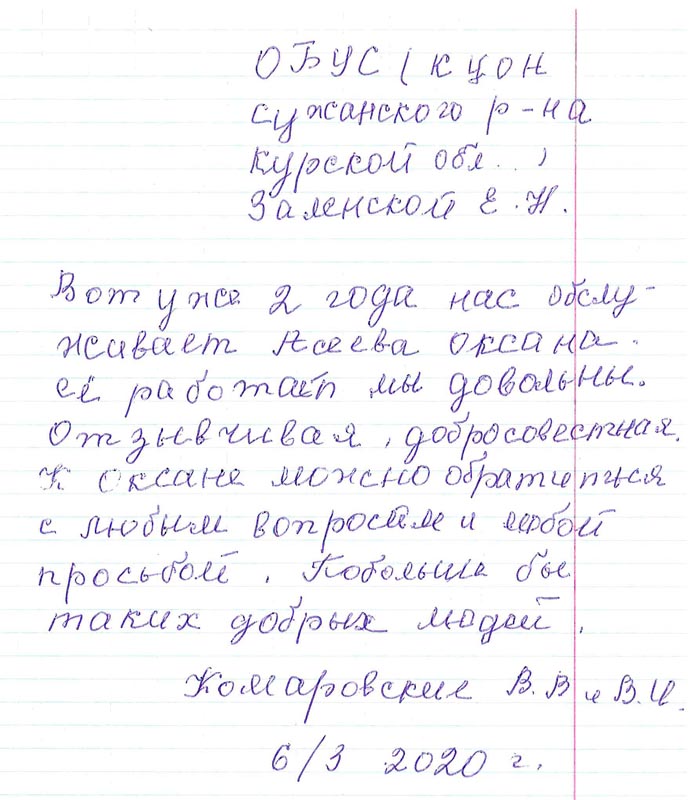 ОБУС (КЦОН
Сужанского р-на
Курской обл..)
Заленской Е.Н.
Вот уже 2 года нас обслу-
живает Асеева Оксана.
её работай мы довольны.
Отзывчивая, добросовестная.
К Оксане можно обратиться
с любым вопросом и любой
просьбой. Побольше бы
таких добрых людей.
Комаровские В.В и В.И.
6/3 2020 г.